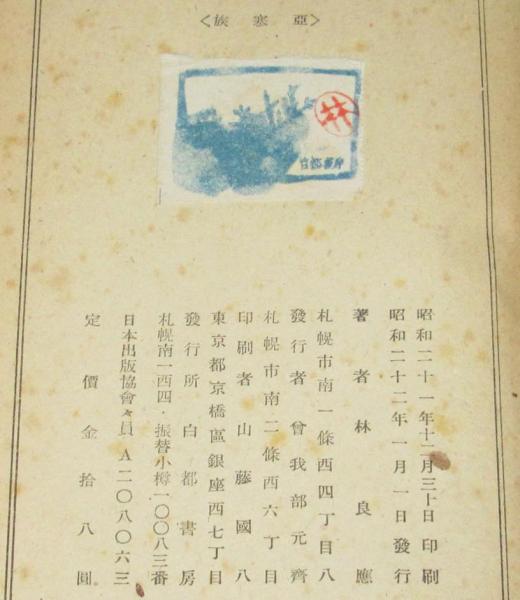 〈亞塞族〉
林
白都書房
昭和二十一年十二月三十日印刷
昭和二十二年一月一日發行
著者林良應
札幌市南一條西四丁目八
發行者曾我部元齊
札幌市南二條西六丁目
印刷者山藤國八
東京都京橋區銀座西七丁目
發行所白都書房
札幌南一西四・振替小樽一〇〇八三番
日本出版協會々員A二〇八〇六三
定價金拾八圓。